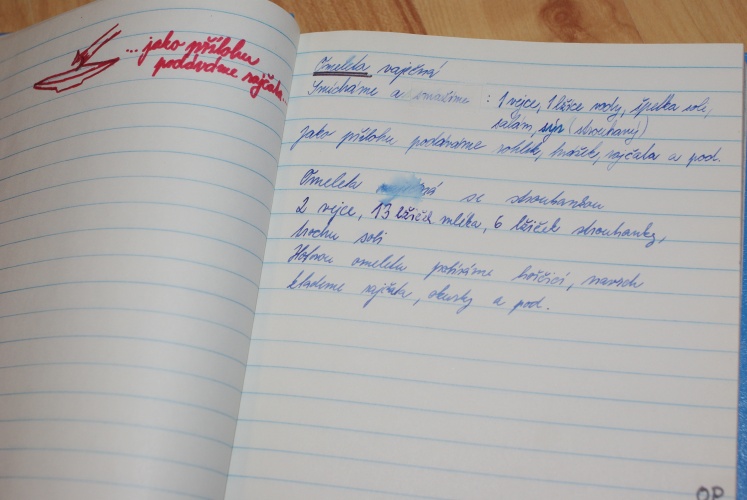 ... jako přílohu
podáváme rajčata...
Omeleta vaječná
Smícháme a smažíme : 1 vejce, 1 lžíce vody, špetka soli,
salám, sýr (strouhaný)
Jako přílohu podáváme rohlík, hrášek, rajčata a pod.
Omeleta se strouhankou
2 vejce, 13 lžiček mléka, 6 lžiček strouhanky,
trochu soli
Hotovou omeletu potíráme hořčicí, navrch
klademe rajčata, okurky a pod.
OP